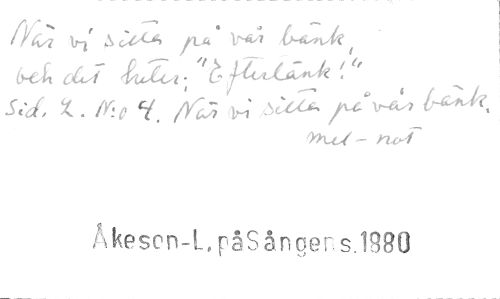 När vi sitta på vår bänk,
och det heter: "Eftertänk!"
Sid. 2. N:o 4. När vi sitta på vår bänk.
mel-not
Åkeson-L, påSångens.1880